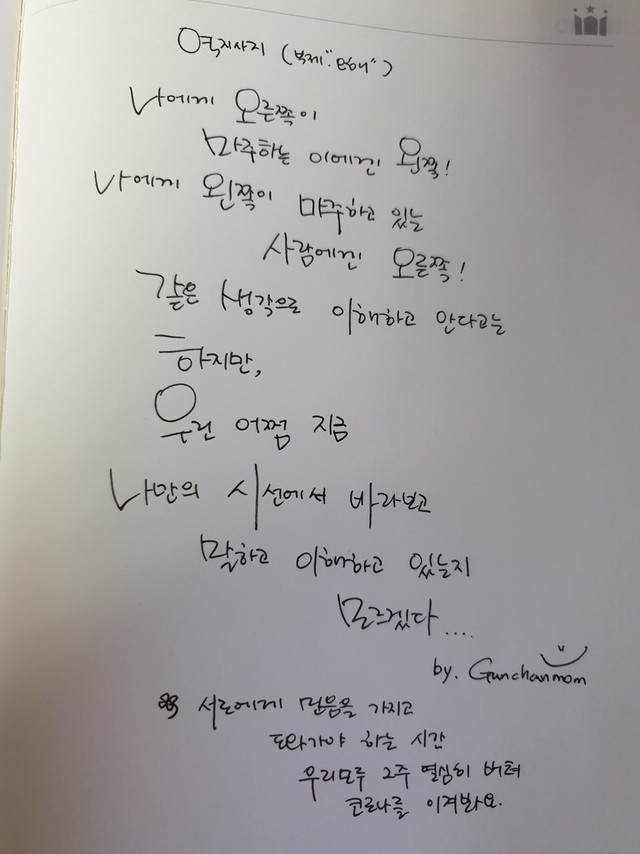 역지사지 (부제: "이해")
나에게 오른쪽이
마주하는 이에겐 왼쪽!
나에게 왼쪽이 마주하고 있는
사람에겐 오른쪽!
같은 생각으로 이해하고 안다고는
하지만,
우린 어쩜 지금
나만의 시선에서 바라보고
말하고 이해하고 있는지
모르겠다....
by. Gunchanmom
※ 서로에게 믿음을 가지고
도와가야 하는 시간
우리모두 2주 열심히 버텨
코로나를 이겨봐요.